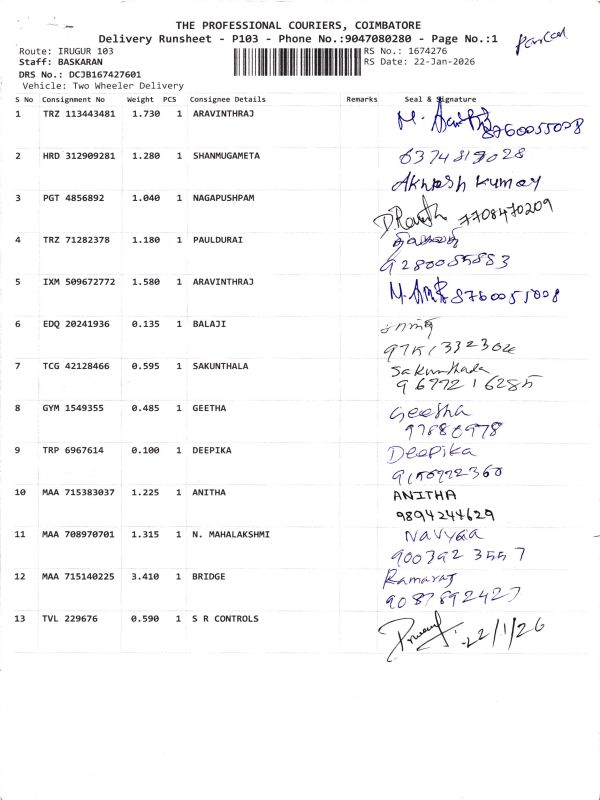 THE PROFESSIONAL COURIERS, COIMBATORE
Delivery Runsheet - P103 - Phone No.:9047080280 - Page No.:1
Parcel
Route: IRUGUR 103
RS No.: 1674276
Staff: BASKARAN
RS Date: 22-Jan-2026
DRS No.: DCJB167427601
Vehicle: Two Wheeler Delivery
S No Consignment No Weight PCS Consignee Details Remarks Seal & Signature
1 TRZ 113443481 1.730 1 ARAVINTHRAJ
8760055008
2 HRD 312909281 1.280 1 SHANMUGAMETA 6374819028
Akhresh Kumay
3 PGT 4856892 1.040 1 NAGAPUSHPAM
7708470209
4 TRZ 71282378 1.180 1 PAULDURAI
9280055853
5 IXM 509672772 1.580 1 ARAVINTHRAJ 8760055008
6 EDQ 20241936 0.135 1 BALAJI
7 TCG 42128466 0.595 1 SAKUNTHALA Sakunthala
9677216285
8 GYM 1549355 0.485 1 GEETHA Geetha
97880978
9 TRP 6967614 0.100 1 DEEPIKA Deepika
9150722360
10 MAA 715383037 1.225 1 ANITHA ANITHA
9894244629
11 MAA 708970701 1.315 1 N. MAHALAKSHMI Navyaa
9003923557
12 MAA 715140225 3.410 1 BRIDGE Ramaraj
9087892427
13 TVL 229676 0.590 1 S R CONTROLS 22/1/26